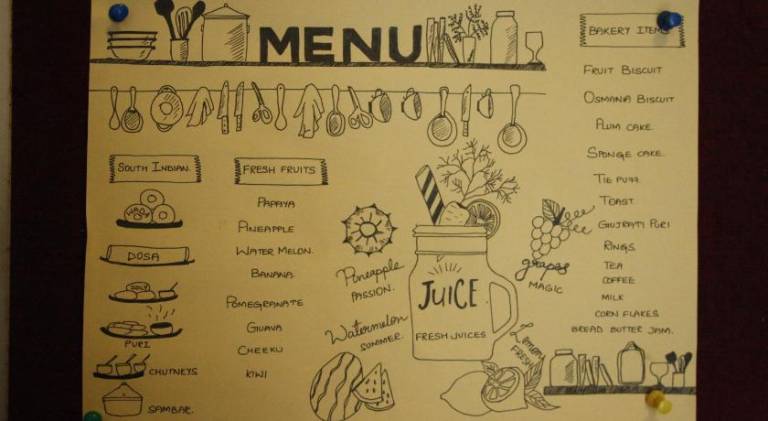 MENU
BAKERY ITEMS
FRUIT BISCUIT
OSMANIA BISCUIT
PLUM CAKE
SPONGE CAKE.
TIE PUFF.
TOAST.
GUJRATI PURI
RINGS.
TEA
COFFEE
MILK
CORN FLAKES
BREAD BUTTER JAM.
SOUTH INDIAN.
WADA
DOSA
IDLY
PURI
CHUTNEYS
SAMBAR.
FRESH FRUITS
PAPAYA
PINEAPPLE
WATER MELON.
BANANA
POMEGRANATE
GUAVA
CHEEKU
KIWI
Pineapple
PASSION.
Watermelon
SUMMER.
JUICE
FRESH JUICES
grapes
MAGIC
Lemon
FRESH